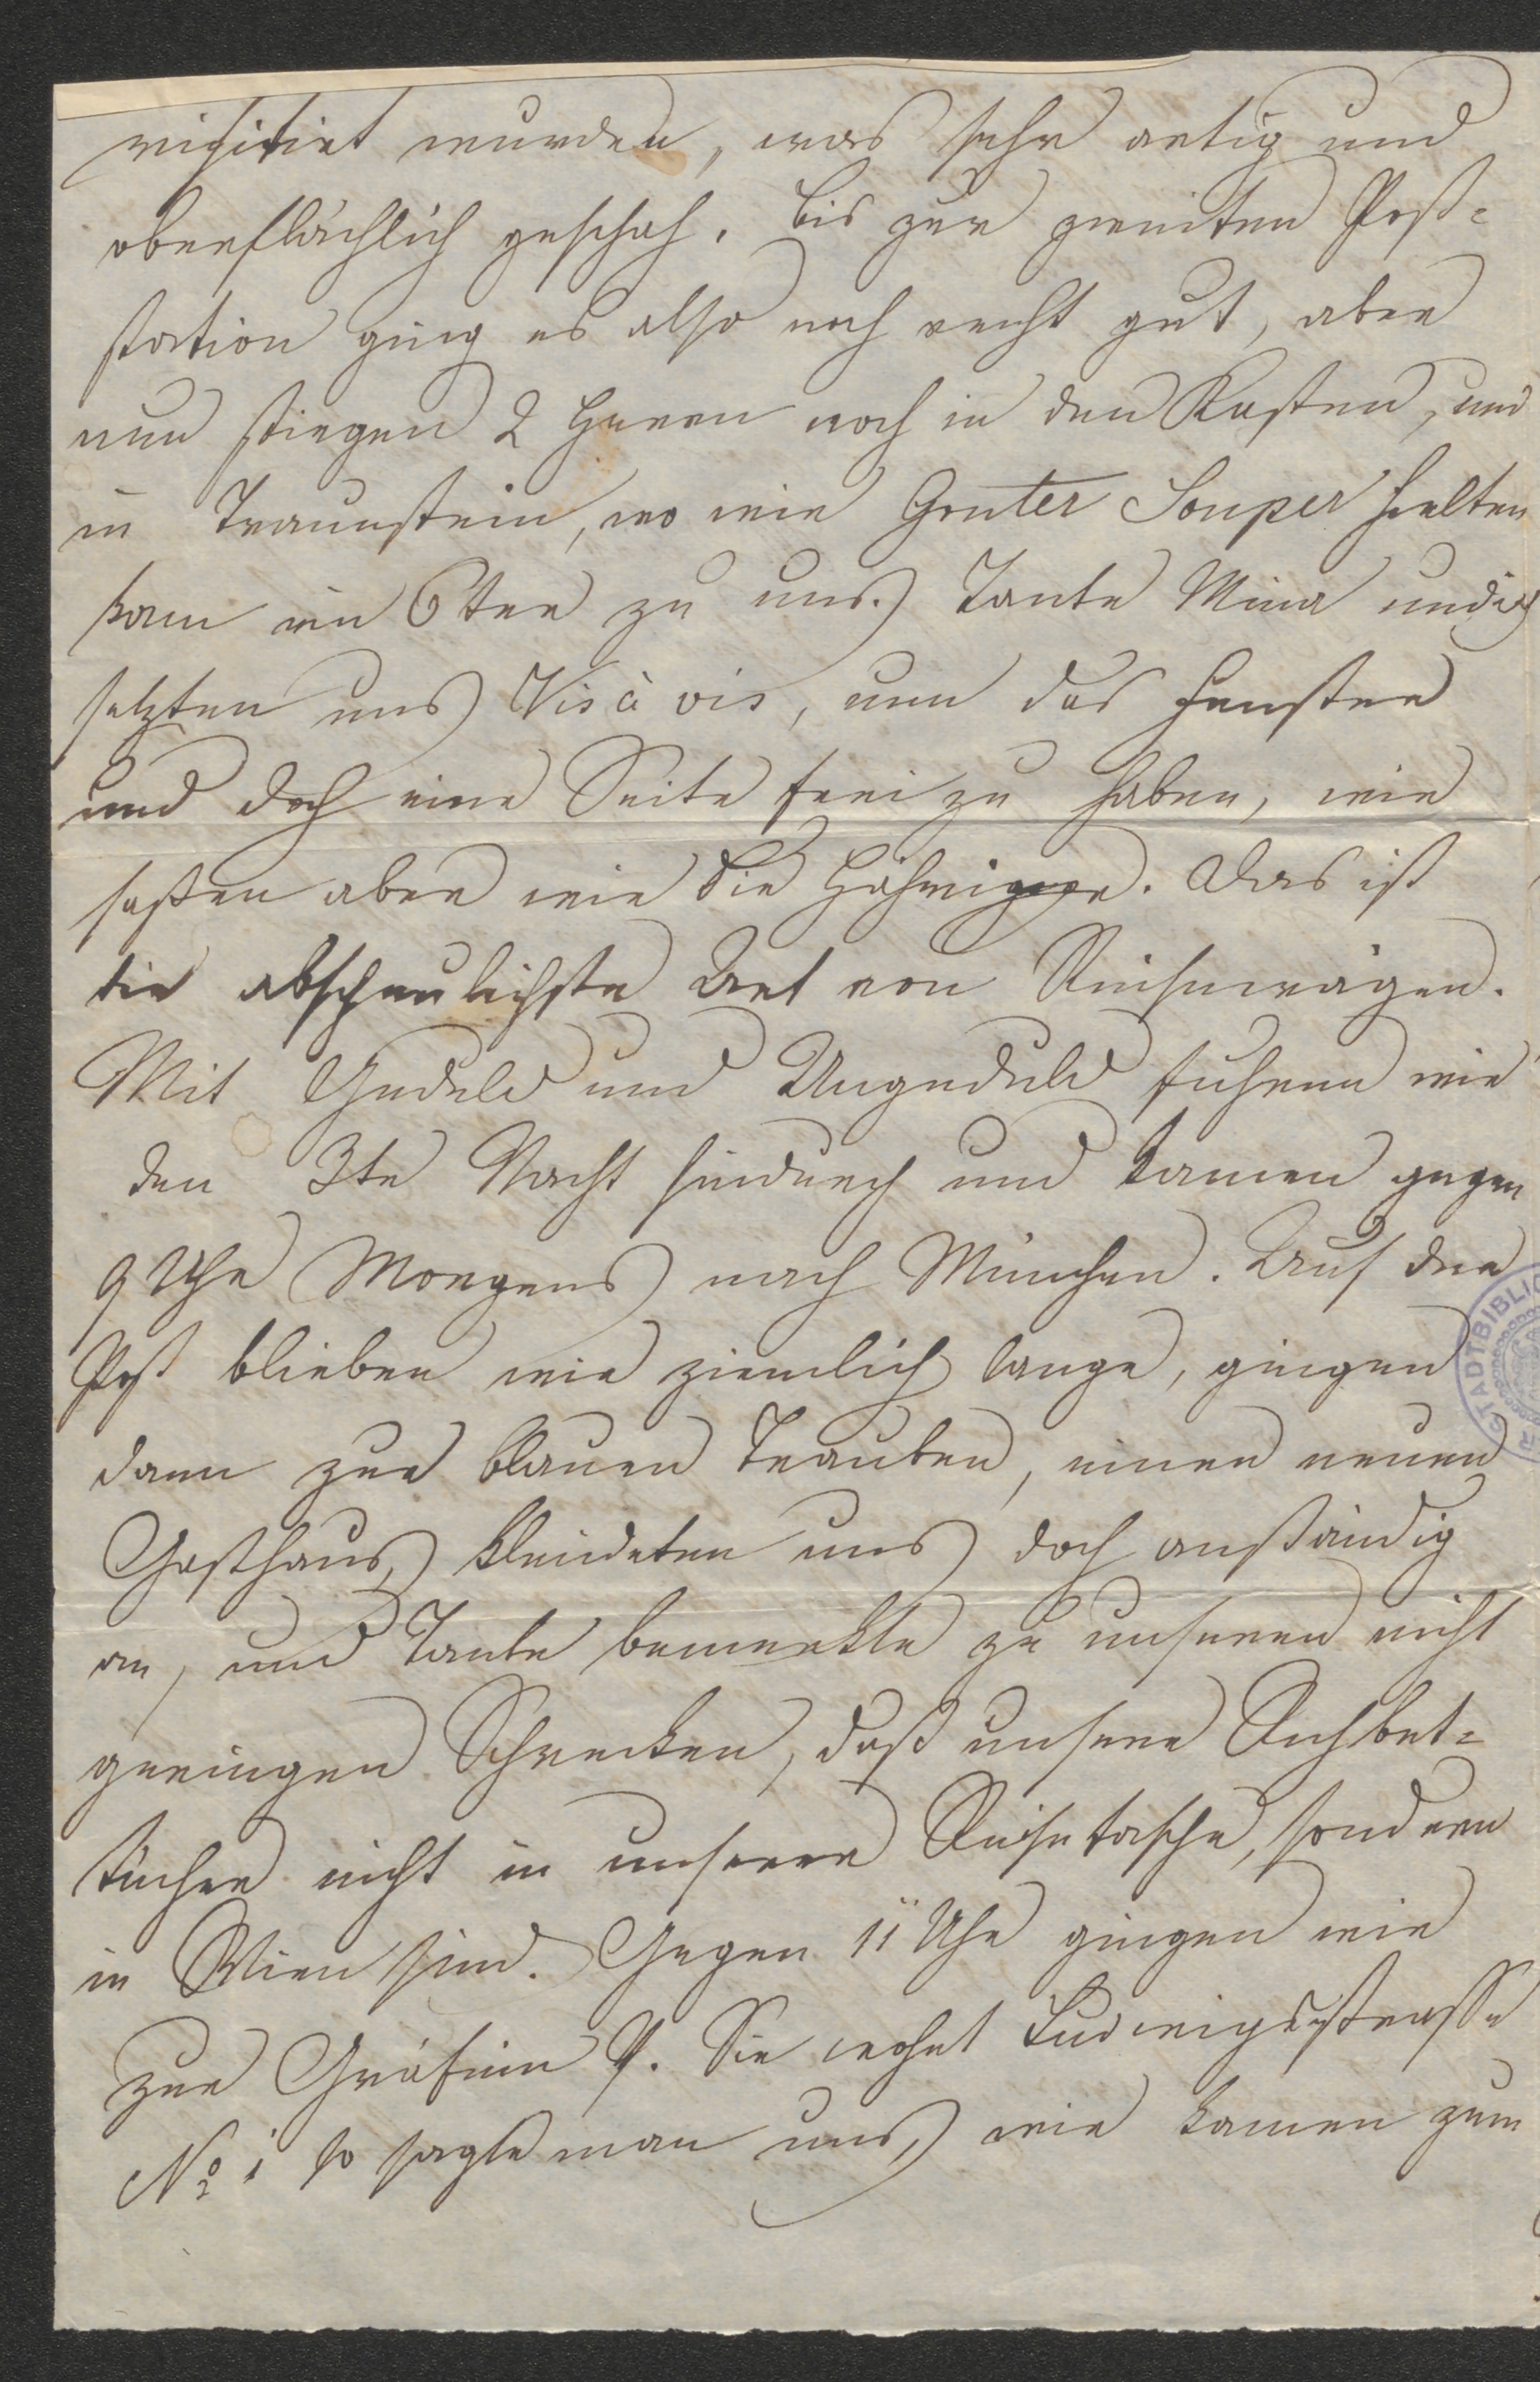 visitiret wurden, was sehr artig und
oberflächlich geschah. Bis zur zweiten Post=
station ging es also noch recht gut, aber
nun stiegen 2 Herrn noch in den Kasten, und
in Traunstein, wo wir Souper hielten
kam ein 6ter zu uns. Tante Mina und ich
setzten uns Vis à vis, um das Fenster
und doch eine Seite frei zu haben, wir
saßen aber wie die Häringe. Das ist
die abscheulichste Art von Reisewägen.
Mit Geduld und Ungeduld fuhren wir
den 3te Nacht hindurch und kamen gegen
9 Uhr Morgens nach München. Auf der
Post blieben wir ziemlich lange, gingen
dann zur blauen Trauben, einen neuen
Gasthaus, kleideten uns doch anständig
an, und Tante bemerkte zu unseren nicht
geringen Schrecken, daß unsere
tücher nicht in unserer Reisetasche, sondern
in Wien sind. Gegen 11 Uhr gingen wir
zur Gräfinn P. Sie wohnt Ludwigsstrasse
No 1 so sagte man uns, wir kamen zum
STADTBIBLIO